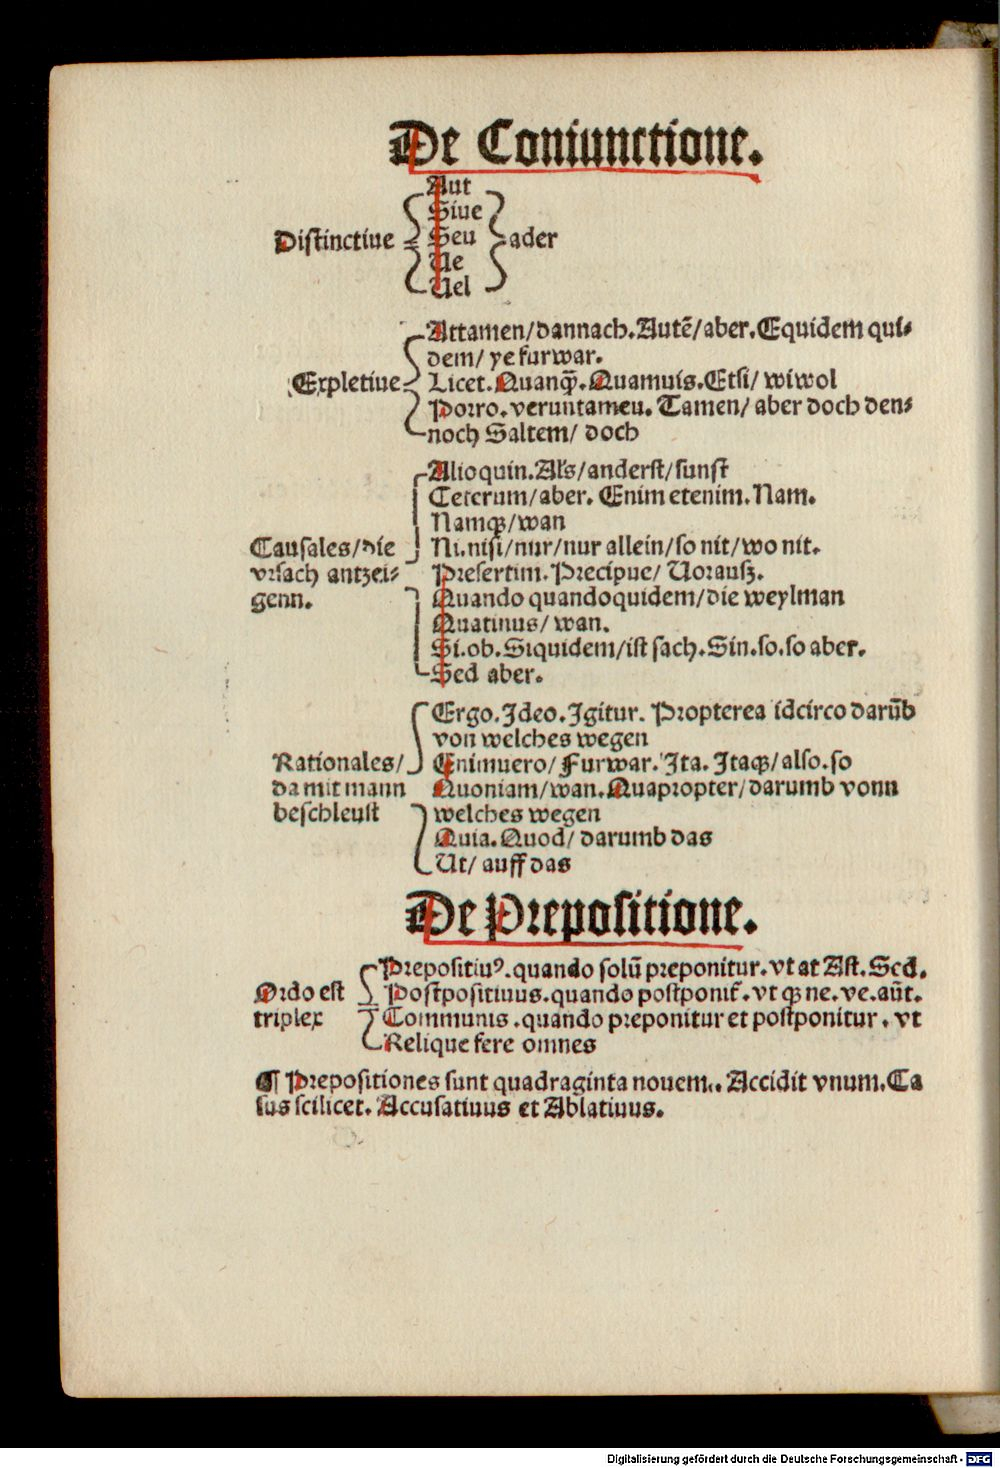 De Coniunctione.
Aut
Siue
Distinctiue Seu ader
Ue
Uel
Attamen/dannach. Autē/aber. Equidem qui⸗
dem/ ye furwar.
Expletiue Licet. Quanq̄. Quamuis. Etsi/ wiwol
Porro. veruntameu. Tamen/ aber doch den⸗
noch Saltem/ doch
Alioquin. Als/anderst/sunst
Ceterum/aber. Enim etenim. Nam.
Namqꝫ/wan
Causales/die Ni. nisi/nur/nur allein/so nit/wo nit.
vrsach antzei⸗ Presertim. Precipue/ Uorausz.
genn. Quando quandoquidem/die weylman
Quatinus/ wan.
Si. ob. Siquidem/ist sach. Sin. so. so aber.
Sed aber.
Ergo. Ideo. Igitur. Propterea idcirco darūb
von welches wegen
Rationales/ Enimuero/ Furwar. Ita. Itaqꝫ/also. so
da mit mann Quoniam/wan. Quapropter/darumb vonn
beschleust welches wegen
Quia. Quod/ darumb das
Ut/ auff das
De Prepositione.
Prepositiuꝰ. quando solū preponitur. vt at Ast. Sed.
Ordo est Postpositiuus. quando postponit̄. vt qꝫ ne. ve. aūt.
triplex Communis. quando preponitur et postponitur. vt
Relique fere omnes
¶ Prepositiones sunt quadraginta nouem.. Accidit vnum. Ca
sus scilicet. Accusatiuus et Ablatiuus.
Digitalisierung gefördert durch die Deutsche Forschungsgemeinschaft - DFG